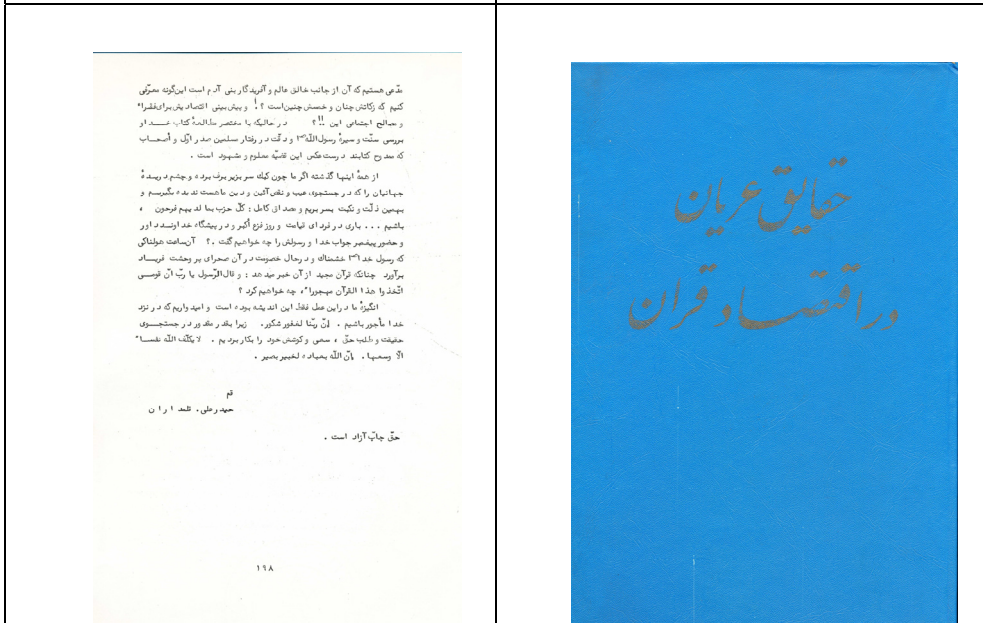 حقایق عریان
در اقتصاد قرآن
مدّعی هستیم که آن از جانب خالق عالم و آفریدگار بنی آدم است این‌گونه معرّفی
کنیم که زکاتش چنان و خمسش چنین‌است ؟! و پیش‌بینی اقتصادیش برای‌فقراء
و مصالح اجتماعی این !!؟ در حالیکه با مختصر مطالعهٔ کتاب خدا و
بررسی سنّت و سیرهٔ رسول‌اللّه(ص) و دقّت در رفتار مسلمین صدر اوّل و أصحاب
که ممدوح کتابند درست‌عکس این قضیّه معلوم و مشهود است .
از همهٔ اینها گذشته اگر ما چون کبک سر بزیر برف برده و چشم دریدهٔ
جهانیان را که در جستجوی عیب و نقص آئین و دین ماهست ندیده بگیریم و
بهمین ذلّت و نکبت بسر بریم و مصداق کامل : کلّ حزب بما لدیهم فرحون ،
باشیم ... باری در فردای قیامت و روز فزع أکبر و در پیشگاه خداوند داور
و حضور پیغمبر جواب خدا و رسولش را چه خواهیم گفت .؟ آن‌ساعت هولناکی
که رسول خدا(ص) خشمناك و درحال خصومت در آن صحرای پر وحشت فریاد
برآورد چنانکه قرآن مجید از آن خبر میدهد : و قال‌الرّسول یا ربّ انّ قومی
اتّخذوا هذا القرآن مهجورا ً، چه خواهیم کرد ؟
انگیزهٔ ما در این عمل فقط این اندیشه بوده است و امیدواریم که در نزد
خدا مأجور باشیم . إنّ ربّنا لغفور شکور. زیرا بقدر مقدور در جستجوی
حقیقت و طلب حقّ ، سعی و کوشش خود را بکار بردیم . لا یکلّف اللّه نفسا ً
الّا وسعها . إنّ اللّه بعباده لخبیر بصیر .
قم
حیدرعلی. قلمداران
حقّ چاپ آزاد است .
۱۹۸